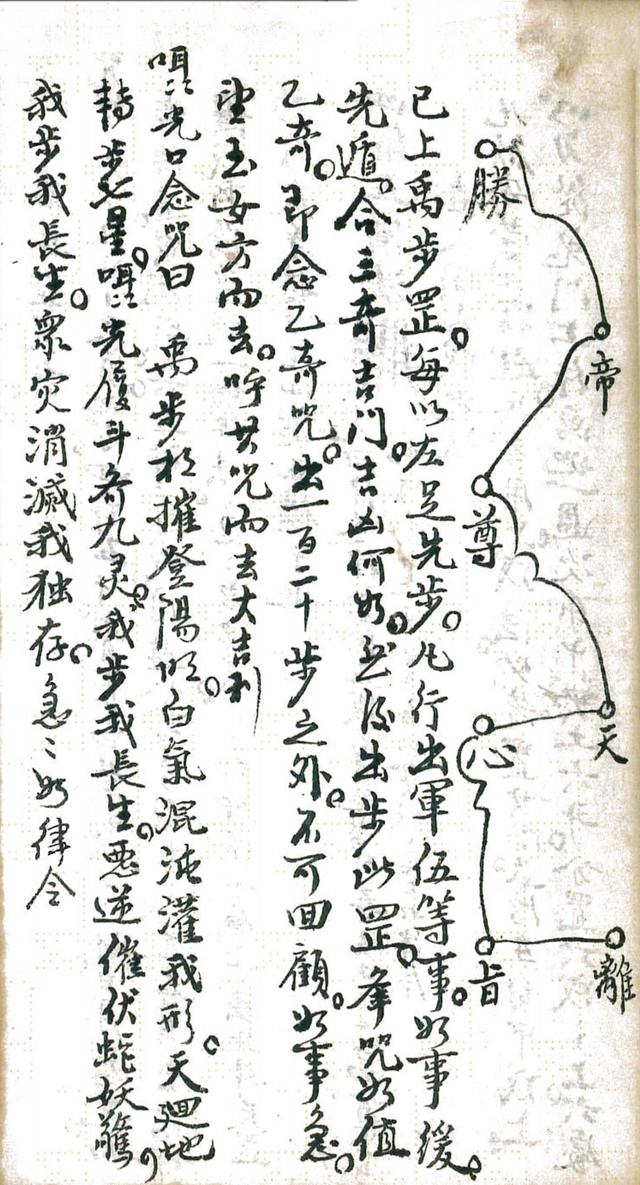 勝
帝
尊
天
心
旨
離
已上禹步罡。每以左足先步。凡行出軍伍等事。如事緩。
先遁。合三奇吉门。吉凶何如。然後出步此罡。奉咒如值
乙奇。即念乙奇咒。出一百二十步之外。不可回顧。如事急。
望玉女方而去。呼其咒而去大吉利
光口念咒曰 禹步相摧登陽明。白氣混沌灌我形。天廻地
轉步七星。光履斗齐九灵。我步我長生。惡逆催伏蛇妖驚。
我步我長生。衆灾消滅我独存。急〻如律令